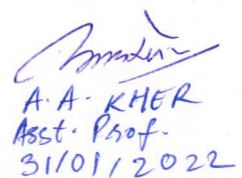 A. A. KHER
Asst. Prof.
31/01/2022